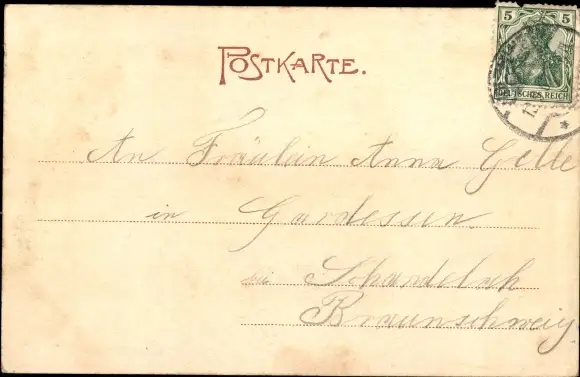 POSTKARTE.
5 5
DEUTSCHES REICH
An Fräulein Anna Gelle
in Gardessen
bei Schandelah
Braunschweig.